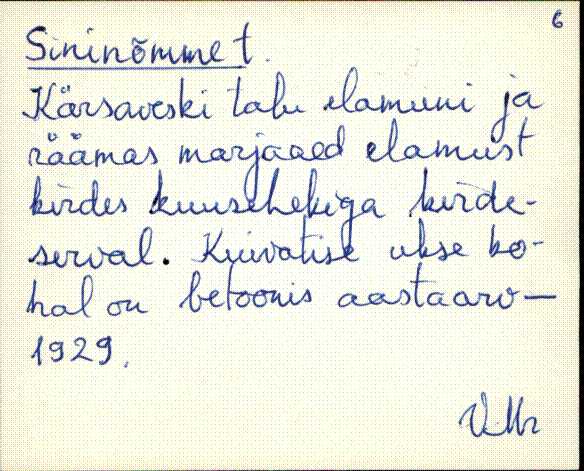 6
Sininõmme t.
Kärsaveski talu elamuni ja
räämas marjaaed elamust
kirdes kuusehekiga kirde-
serval. Kuivatise ukse ko-
hal on betoonis aastaarv—
1929.